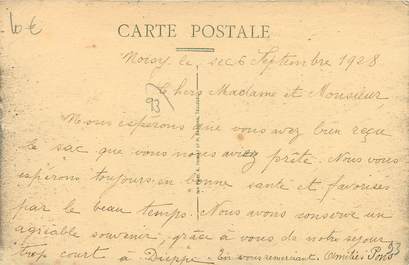 6€
CARTE POSTALE
Noisy le sec 6 Septembre 1928
Chers Madame et Monsieur
93
Nous espérons que vous avez bien reçu
le sac que vous nous aviez prêté. Nous vous
espérons toujours en bonne santé et favorisés
par le beau temps. Nous avons conservé un
agréable souvenir, grâce à vous de notre séjour
trop court à Dieppe. En vous remerciant. Amitiés Pons
93